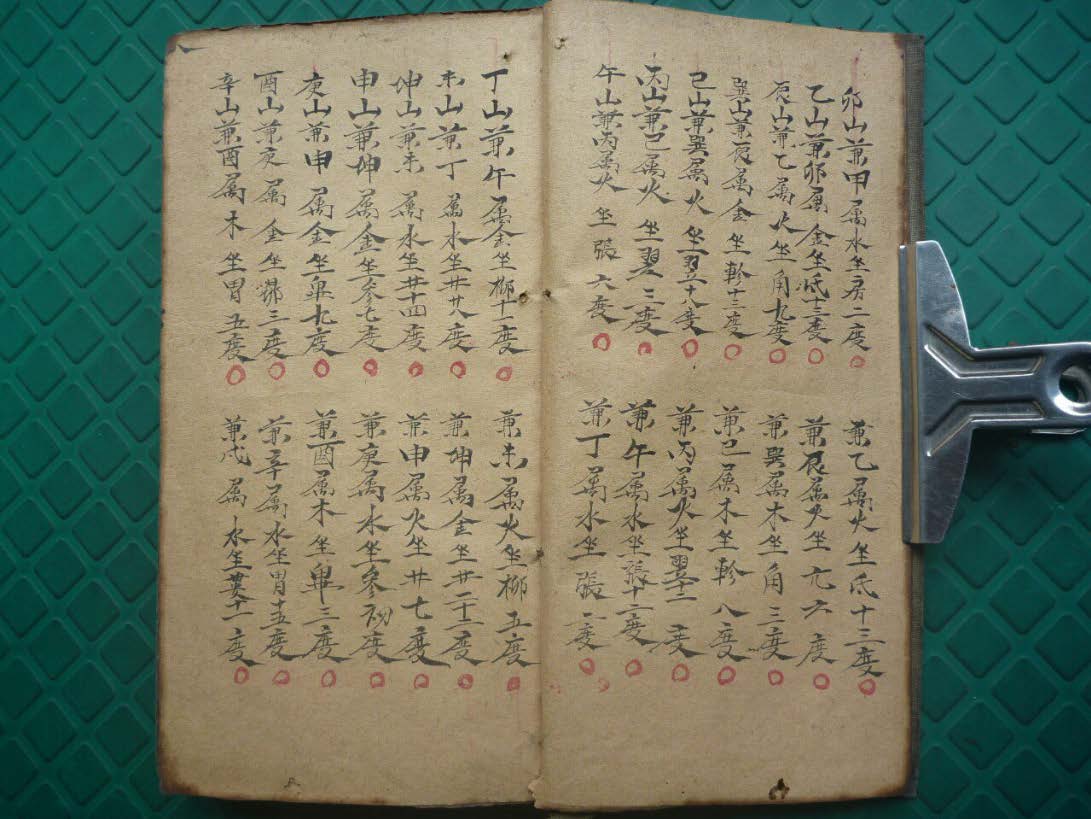 卯山兼甲属水坐房二度
兼乙属火坐氐十三度
乙山兼卯属金坐氐十三度
兼辰属火坐亢六度
辰山兼乙属火坐角九度
兼巽属木坐角三度
巽山兼辰属金坐軫十三度
兼巳属木坐軫八度
巳山兼巽属火坐翌十八度
兼丙属火坐翌十一度
丙山兼巳属火坐翌三度
兼午属水坐張十二度
午山兼丙属火坐張六度
兼丁属水坐張一度
丁山兼午属金坐柳十一度
兼未属火坐柳五度
未山兼丁属水坐井廿八度
兼坤属金坐井二十二度
坤山兼未属水坐井十四度
兼申属火坐井七度
申山兼坤属金坐参七度
兼庚属水坐参初度
庚山兼申属金坐畢九度
兼酉属木坐畢三度
酉山兼庚属金坐昴三度
兼辛属水坐胃十五度
辛山兼酉属木坐胃五度
兼戌属水坐婁十一度